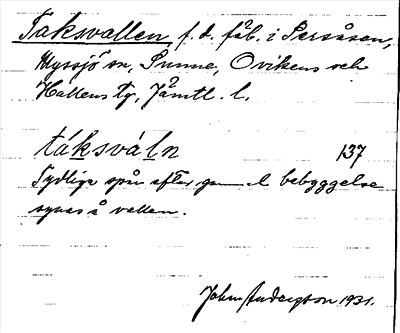 Taksvallen f. d. fäb. i Persåsen,
Myssjö sn, Sunne, Ovikens och
Hallens tg, Jämtl. l.
táksváln 137
Tydliga spår efter gammal bebyggelse
synas å vallen.
John Andersson 1931.